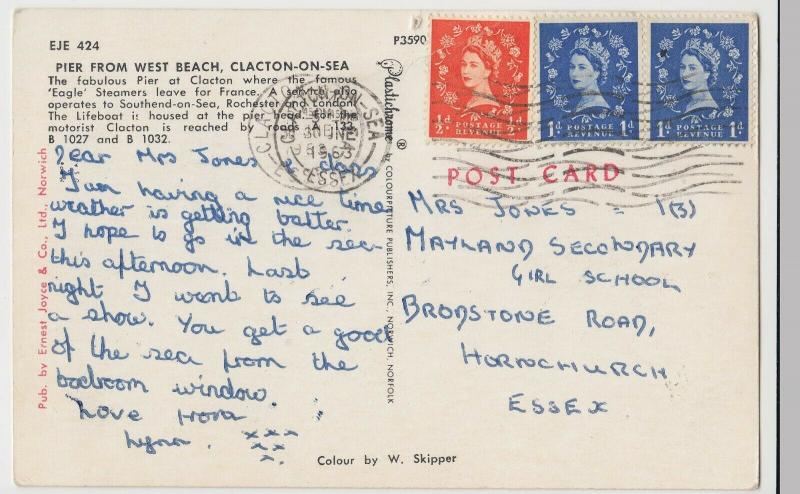 EJE 424
P3590
PIER FROM WEST BEACH, CLACTON-ON-SEA
The fabulous Pier at Clacton where the famous
'Eagle' Steamers leave for France. A service also
operates to Southend-on-Sea, Rochester and London
The Lifeboat is housed at the pier head, for the
motorist Clacton is reached by roads A 133,
B 1027 and B 1032.
Dear Mrs Jones & class
I am having a nice time
weather is getting better.
I hope to go in the sea
this afternoon. Last
night I went to see
a show. You get a good
of the sea from the
bedroom window.
Love from
Lynn. xxx
xx
x
Pub. by Ernest Joyce & Co., Ltd., Norwich
Plastichrome ®
by COLOURPICTURE PUBLISHERS, INC., NORWICH, NORFOLK
½d POSTAGE REVENUE ½d
1d POSTAGE REVENUE 1d
1d POSTAGE REVENUE 1d
CLACTON-ON-SEA
ESSEX
POST CARD
MRS JONES = 1(3)
MAYLAND SECONDARY
GIRL SCHOOL
BROMSTONE ROAD,
HORNCHURCH
ESSEX
Colour by W. Skipper